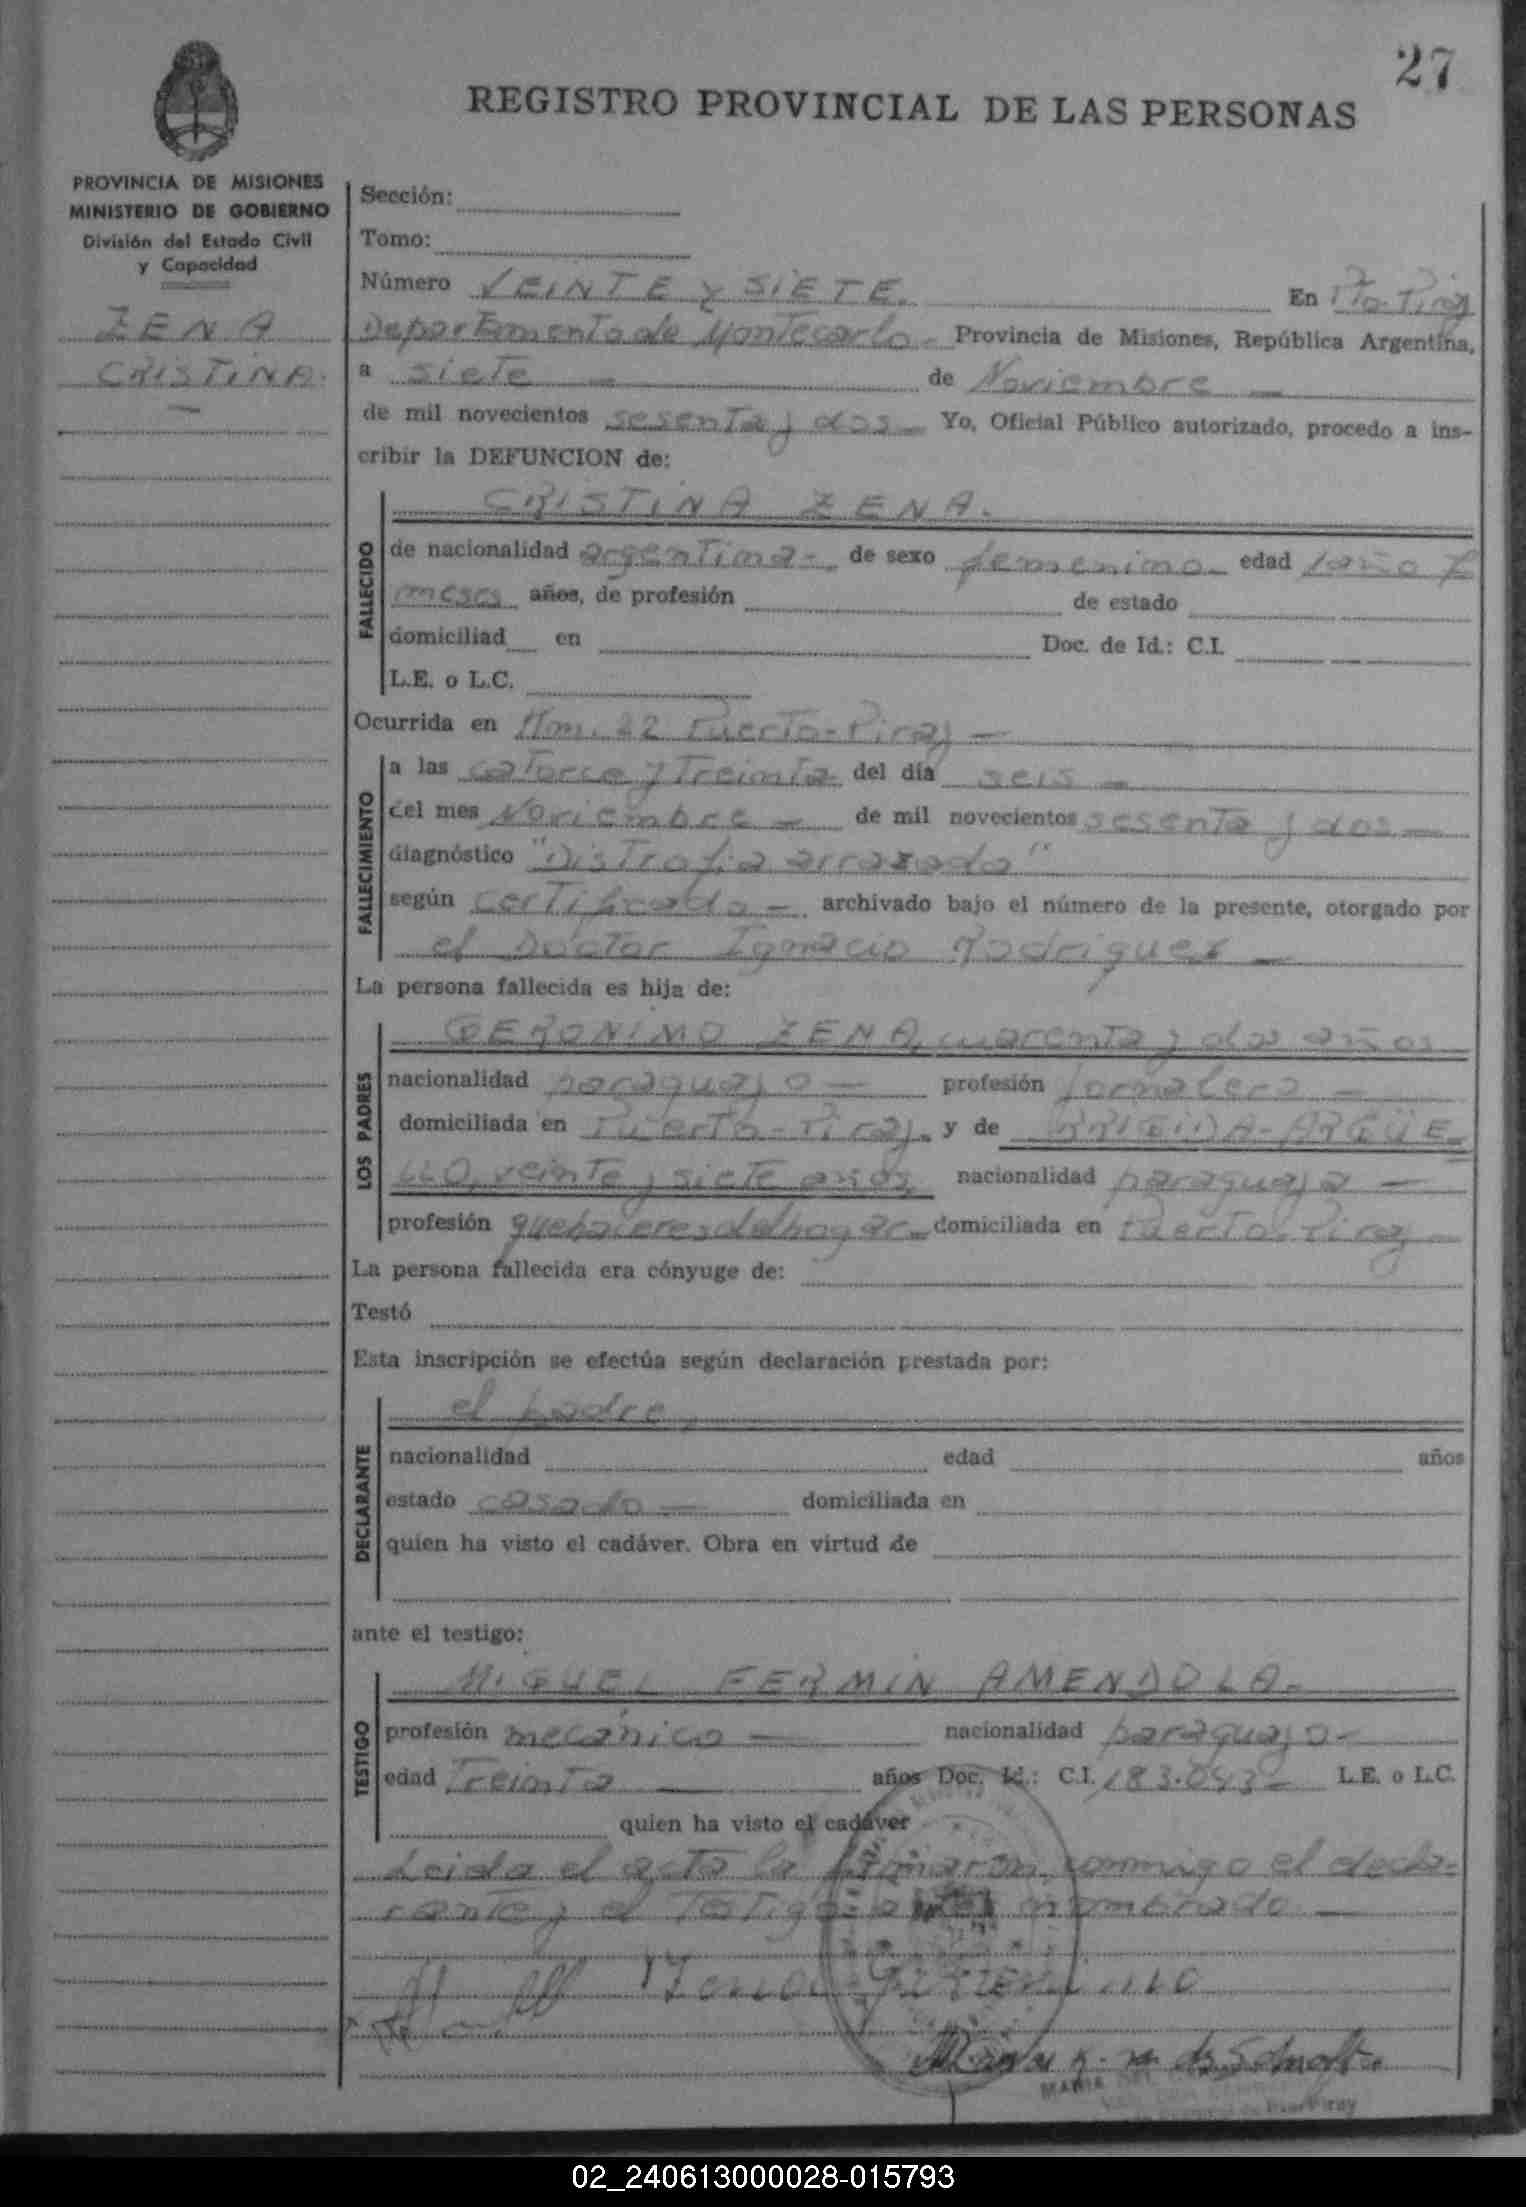 27
REGISTRO PROVINCIAL DE LAS PERSONAS
PROVINCIA DE MISIONES
MINISTERIO DE GOBIERNO
División del Estado Civil
y Capacidad
ZENA
CRISTINA.
Sección:
Tomo:
Número VEINTE y SIETE. En Pto-Piray
Departamento de Montecarlo - Provincia de Misiones, República Argentina,
a siete - de Noviembre -
de mil novecientos sesenta y dos - Yo, Oficial Público autorizado, procedo a ins-
cribir la DEFUNCION de:
FALLECIDO
CRISTINA ZENA.
de nacionalidad argentina -. de sexo femenino - edad 1 año 7
meses años, de profesión de estado
domiciliad en Doc. de Id.: C.I.
L.E. o L.C.
Ocurrida en Km. 22 Puerto-Piray -
FALLECIMIENTO
a las catorce y treinta del día seis -
del mes Noviembre - de mil novecientos sesenta y dos -
diagnóstico "Distrofia
según certificado - archivado bajo el número de la presente, otorgado por
el Doctor Ignacio Rodriguez -
La persona fallecida es hija de:
LOS PADRES
GERONIMO ZENA, cuarenta y dos años
nacionalidad paraguayo - profesión jornalero -
domiciliada en Puerto-Piray. y de BRIGIDA-ARGÜE-
LLO, veinte y siete años, nacionalidad paraguaya -
profesión quehaceres del hogar - domiciliada en Puerto-Piray -
La persona fallecida era cónyuge de:
Testó
Esta inscripción se efectúa según declaración prestada por:
DECLARANTE
el padre,
nacionalidad edad años
estado casado - domiciliada en
quien ha visto el cadáver. Obra en virtud de
ante el testigo:
TESTIGO
MIGUEL FERMIN AMENDOLA.
profesión mecánico - nacionalidad paraguayo -
edad Treinta - años Doc. Id.: C.I. 183.043 - L.E. o L.C.
quien ha visto el cadáver
Leida el acta la firmaron conmigo el decla-
rante y el testigo antes nombrado -
MARIA
Piray
02_240613000028-015793